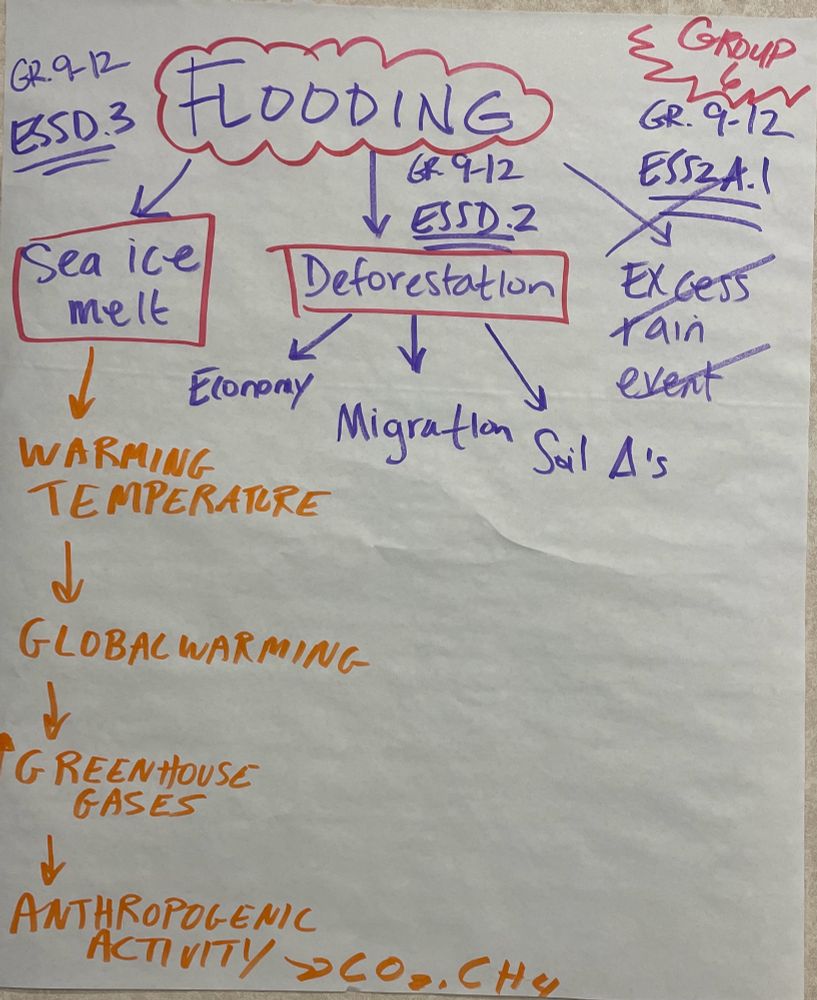 GROUP
6
GR. 9-12
ESSD.3
FLOODING
GR. 9-12
ESS2A.1
GR. 9-12
ESSD.2
Sea ice
melt
Deforestation
Excess
rain
event
Economy
Migration
Soil Δ's
WARMING
TEMPERATURE
GLOBAL WARMING
↑GREENHOUSE
GASES
ANTHROPOGENIC
ACTIVITY → CO₂, CH₄